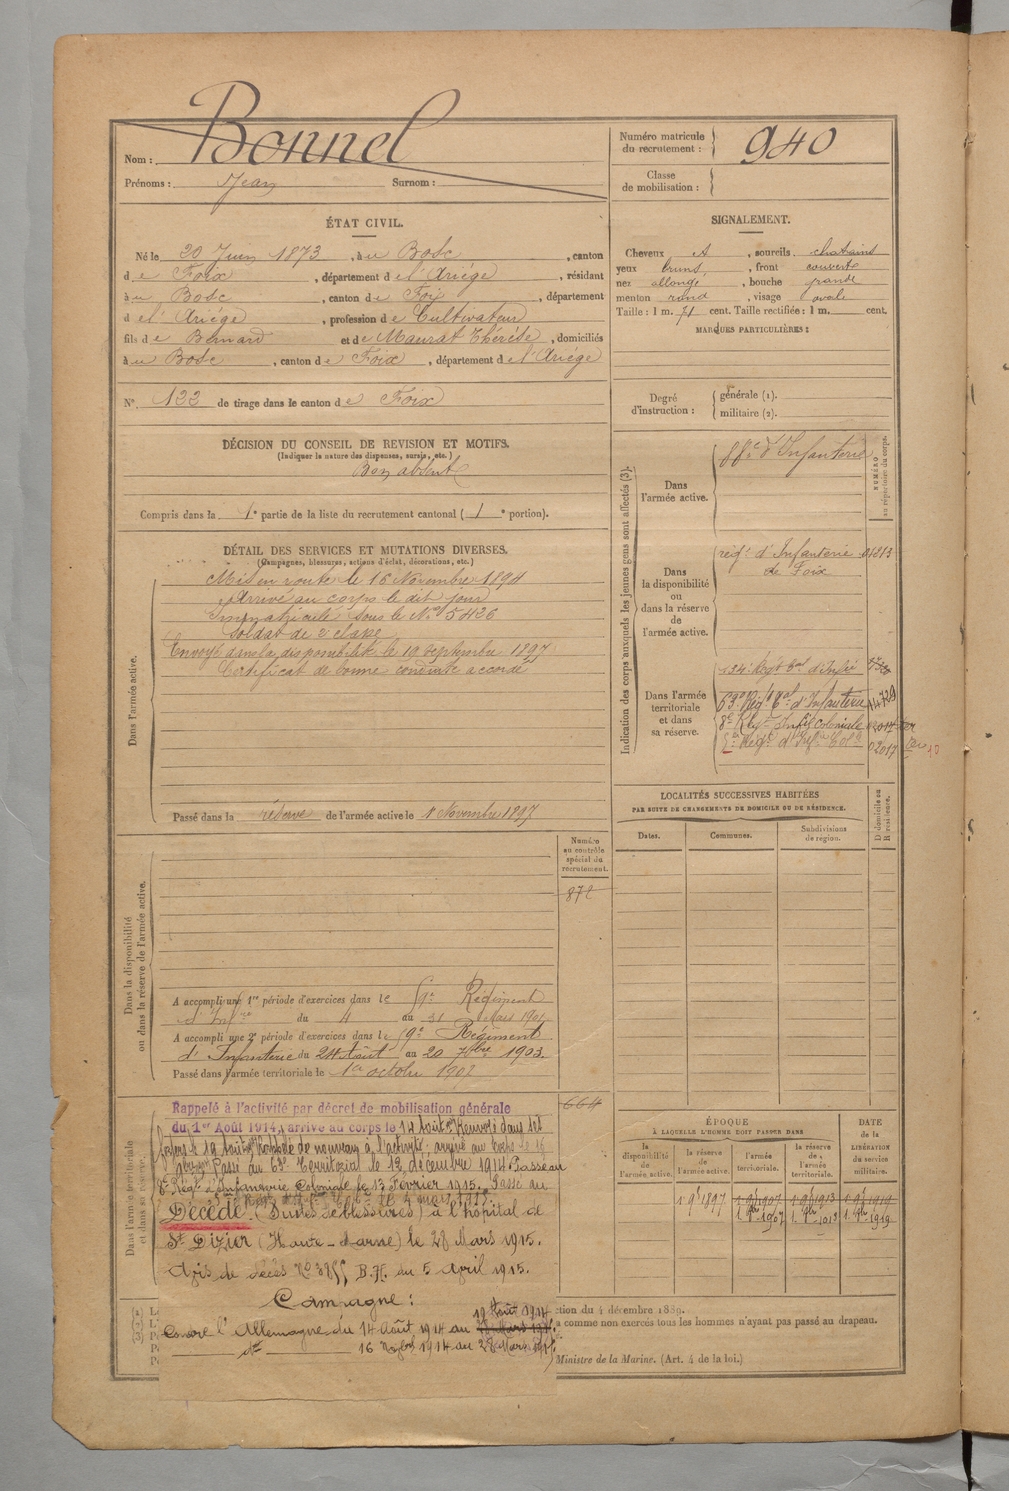 Nom : Bonnel
Prénoms : Jean Surnom :
Numéro matricule du recrutement : 940
Classe de mobilisation :
ÉTAT CIVIL.
Né le 20 Juin 1873, à u Bosc, canton
d e Foix, département d e l'Ariége, résidant
à u Bosc, canton d e Foix, département
d e l'Ariége, profession d e Cultivateur
fils d e Bernard et d e Maurat Thérése, domiciliés
à u Bosc, canton d e Foix, département d e l'Ariége
N° 122 de tirage dans le canton d e Foix
SIGNALEMENT.
Cheveux , sourcils chatains
yeux bruns, , front couvert
nez allongé , bouche grande
menton rond , visage ovale
Taille : 1 m. 71 cent. Taille rectifiée : 1 m. cent.
MARQUES PARTICULIÈRES :
Degré d'instruction : générale (1).
militaire (2).
DÉCISION DU CONSEIL DE REVISION ET MOTIFS.
(Indiquer la nature des dispenses, sursis, etc.)
Bon absent
Compris dans la 1e partie de la liste du recrutement cantonal ( 1 e portion).
DÉTAIL DES SERVICES ET MUTATIONS DIVERSES.
(Campagnes, blessures, actions d'éclat, décorations, etc.)
Dans l'armée active.
Mis en route le 16 Novembre 1894
Arrivé au corps le dit jour
Immatriculé sous le N° 5426
Soldat de 2e classe
Envoyé dans la disponibilité le 19 septembre 1897
Certificat de bonne conduite accordé
Passé dans la réserve de l'armée active le 1 Novembre 1897
Indication des corps auxquels les jeunes gens sont affectés (3).
NUMÉRO au répertoire du corps.
Dans l'armée active.
d'Infanterie
Dans la disponibilité ou dans la réserve de l'armée active.
régt d'Infanterie
de Foix
Dans l'armée territoriale et dans sa réserve.
134e Régt tal d'Infie
63e Régt tal d'Infanterie 14729
8e Régt Infie Coloniale
Régt d'Infie Colle 02017
LOCALITÉS SUCCESSIVES HABITÉES
PAR SUITE DE CHANGEMENTS DE DOMICILE OU DE RÉSIDENCE.
Dates. Communes. Subdivisions de région. D domicile ou R résidence.
Dans la disponibilité ou dans la réserve de l'armée active.
Numéro au contrôle spécial du recrutement.
872
A accompli une 1re période d'exercices dans le 59e Régiment
d'Infie du 4 au 31 Mars 1901
A accompli une 2e période d'exercices dans le 59e Régiment
d'Infanterie du 24 Août au 20 7bre 1903.
Passé dans l'armée territoriale le 1er octobre 1907
Dans l'armée territoriale et dans sa réserve.
664
Rappelé à l'activité par décret de mobilisation générale
du 1er Août 1914, arrive au corps le 14 Août Renvoyé dans ses
foyers le 19 Août Rappelé de nouveau à l'activité ; arrivé au corps le 16
Passé au 63e Territorial le 12 décembre 1914 Passé au
8e Régt d'Infanterie Coloniale le 13 Février 1915. Passé au
4 mars 1915.
Décédé (Suites de blessures) à l'hôpital de
St Dizier (Haute-Marne) le 28 Mars 1915.
Avis de décès N° du 5 Avril 1915.
Campagne :
19 Août 1914
Contre l'Allemagne du 14 Août 1914 au 28 Mars 1915.
16 1914 au 28 Mars 1915.
ÉPOQUE
À LAQUELLE L'HOMME DOIT PASSER DANS
DATE de la LIBÉRATION du service militaire.
la disponibilité de l'armée active.
la réserve de l'armée active.
l'armée territoriale.
la réserve de l'armée territoriale.
1 9e 1897 1 9e 1907 1 9e 1913 1 9e 1919
1. 8bre 1907 1. 8bre 1913 1. 8bre 1919
ction du 4 décembre 1889.
a comme non exercés tous les hommes n'ayant pas passé au drapeau.
Ministre de la Marine. (Art. 4 de la loi.)